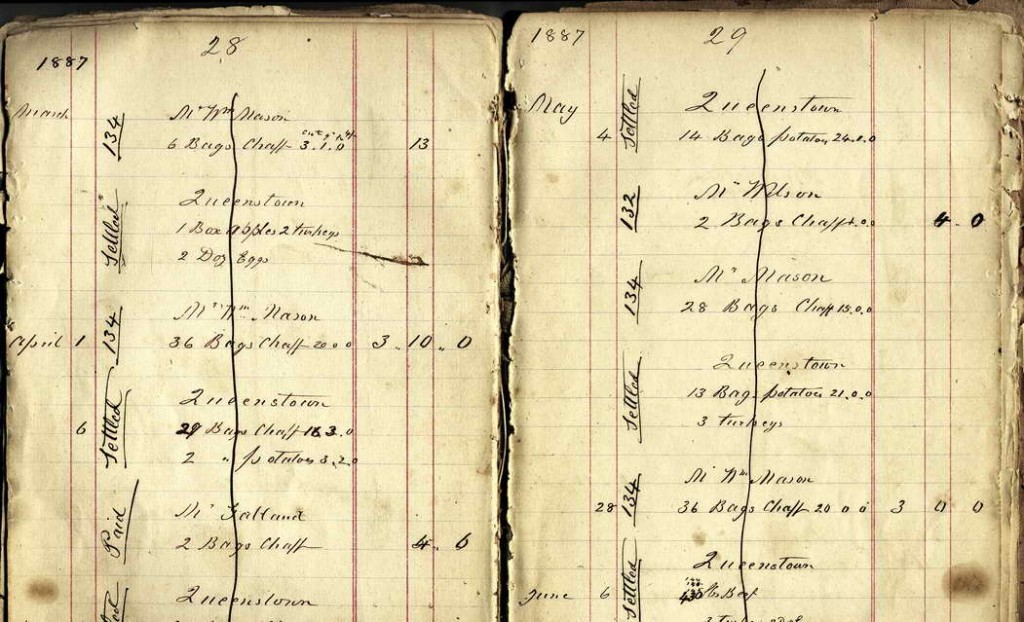 28
1887
March
134
Mr Wm Mason
6 Bags Chaff 3.1.0 13
Settled
Queenstown
1 Box apples 2 turkeys
2 Doz Eggs
134
Mr Wm Mason
April 1 36 Bags Chaff 20 0 0 3 . 10 . 0
Settled
Queenstown
6 29 Bags Chaff 16 3.0
2 " potatoes 3.2.0
Paid
Mr Falland
2 Bags Chaff 4 . 6
Queenstown
1887 29
May
Settled
Queenstown
4 14 Bags potatoes 24.0.0
132
Mr Wilson
2 Bags Chaff 1.0.0 4 . 0
134
Mr Mason
28 Bags Chaff 15.0.0
Settled
Queenstown
13 Bags potatoes 21.0.0
3 turkeys
134
Mr Wm Mason
28 36 Bags Chaff 20 0 0 3 0 0
Settled
Queenstown
June 6 lbs Beef